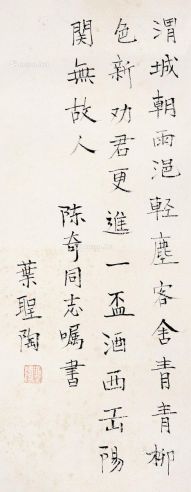 渭城朝雨浥輕塵客舍青青柳
色新勸君更進一盃酒西出陽
關無故人
陳奇同志囑書
葉聖陶